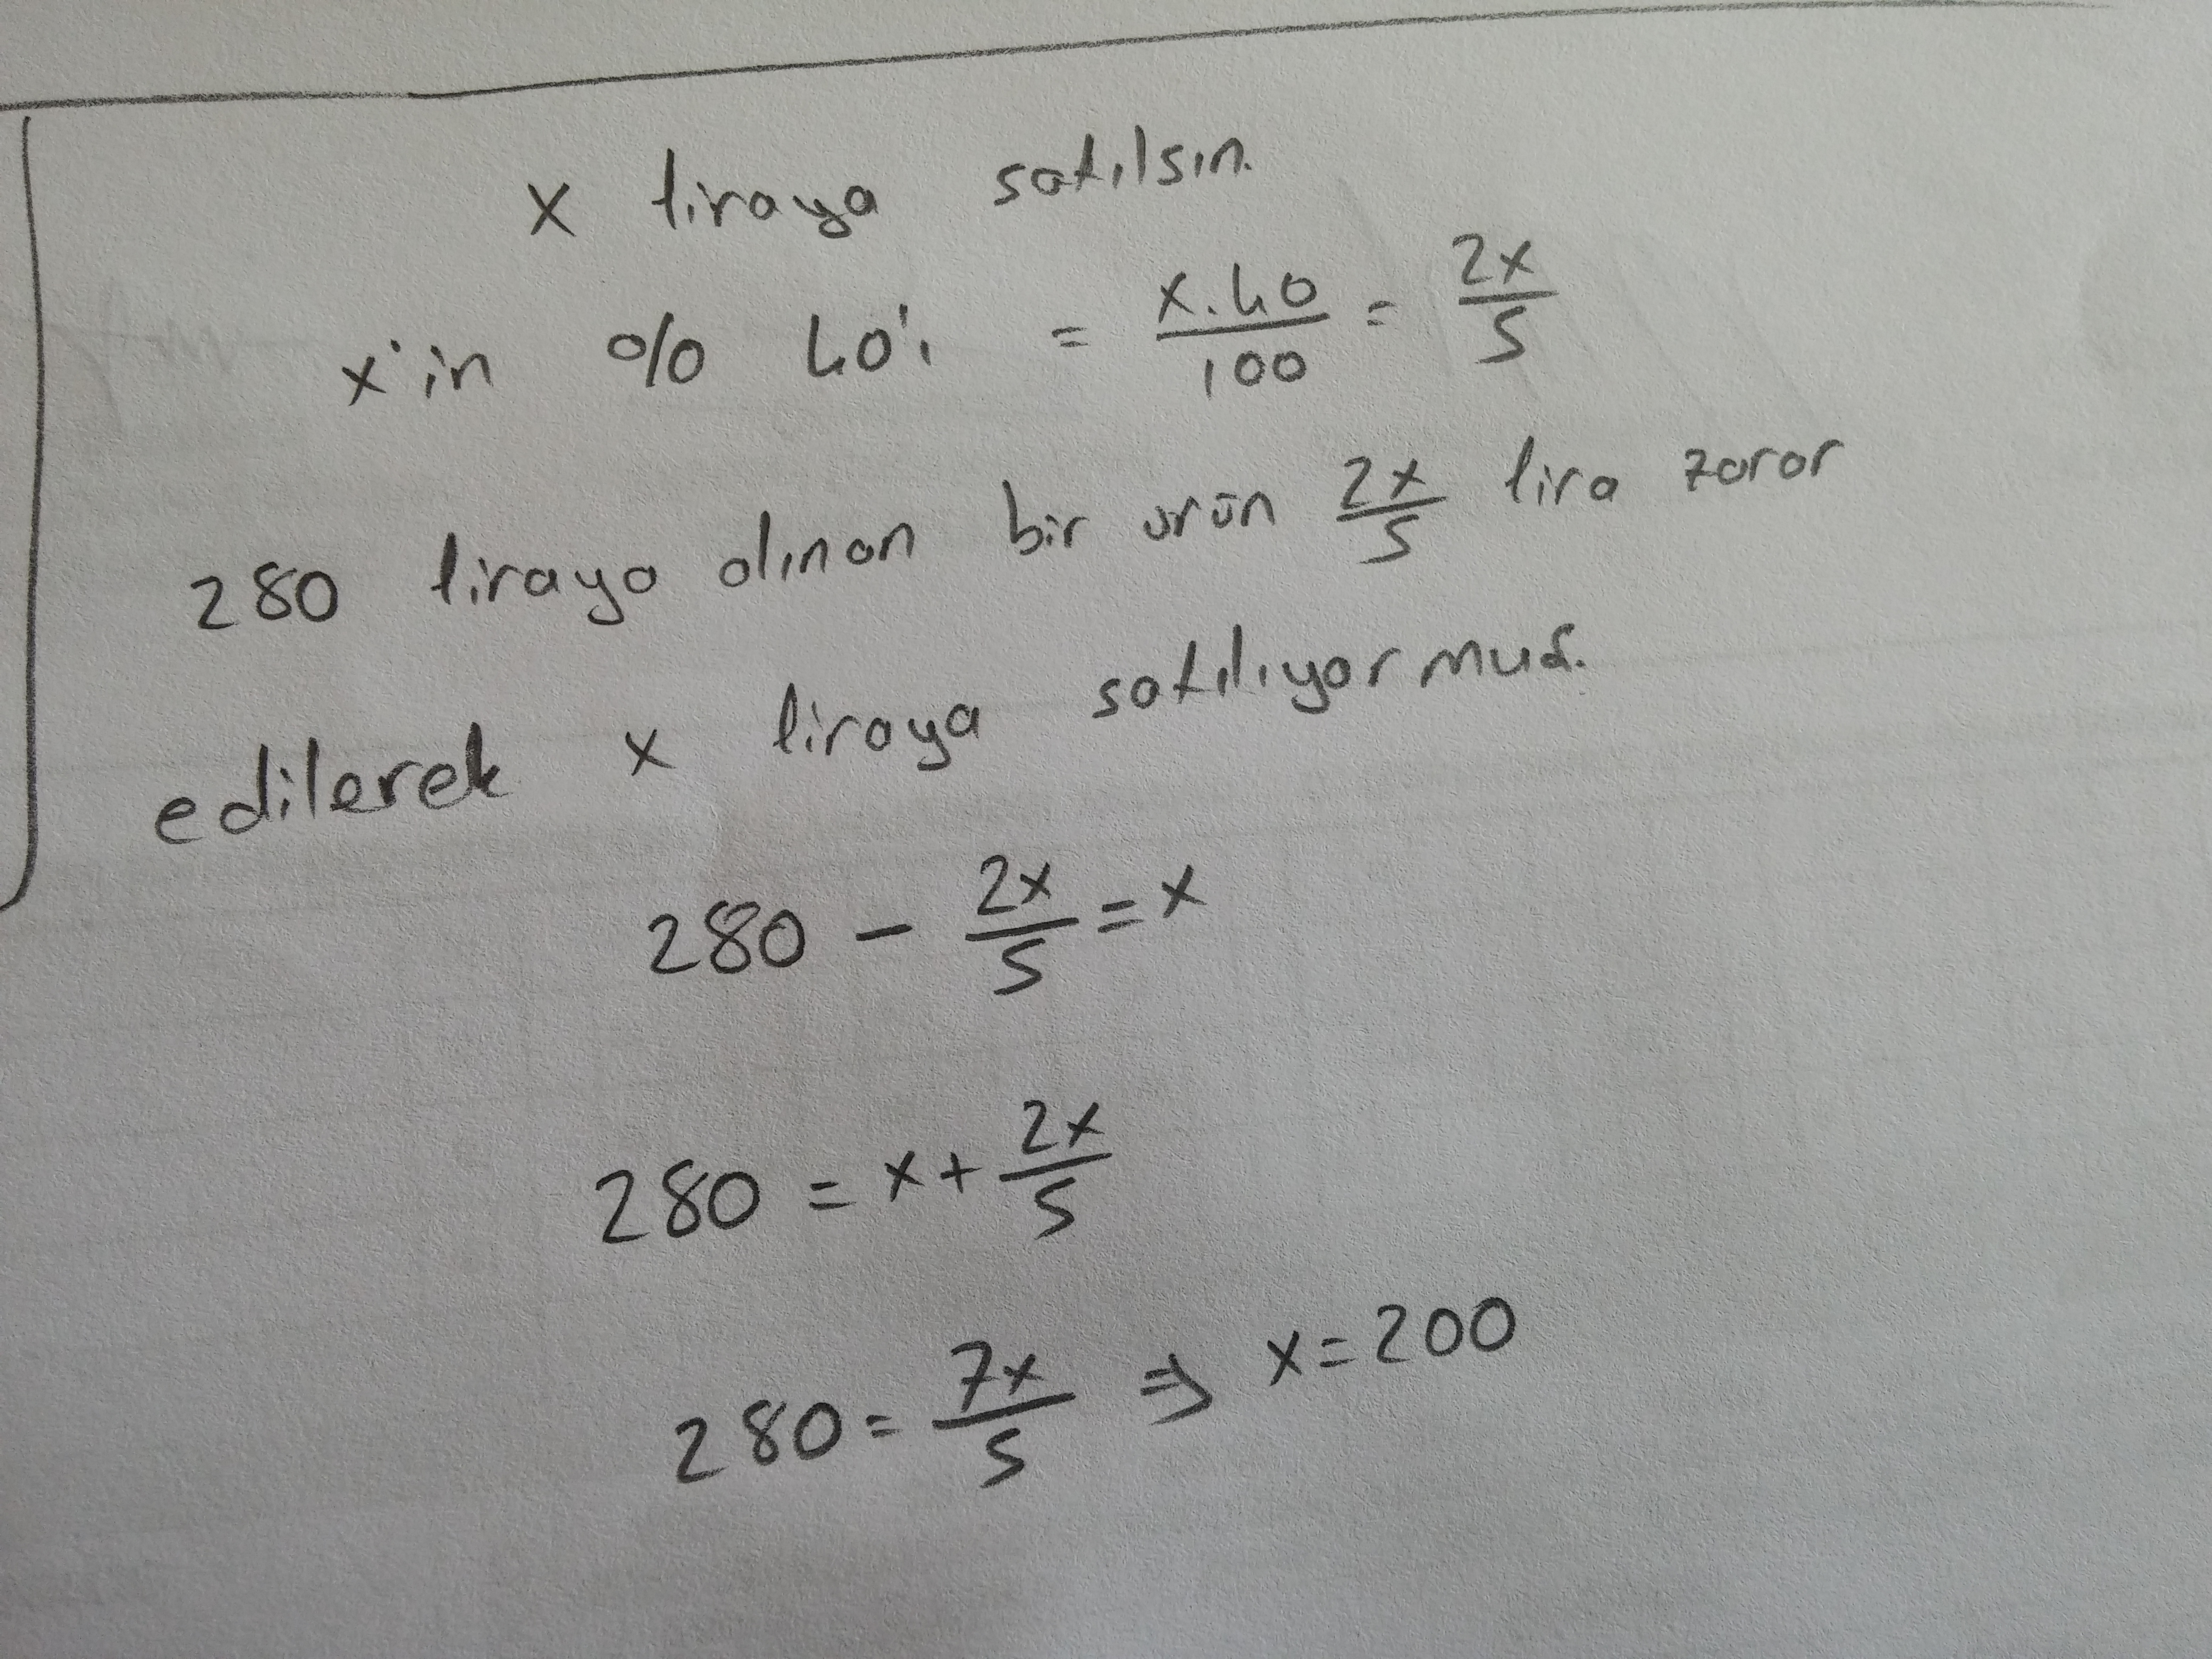 x liraya satılsın.
x'in % 40'ı = x.40/100 = 2x/5
280 liraya alınan bir ürün 2x/5 lira zarar
edilerek x liraya satılıyormuş.
280 - 2x/5 = x
280 = x + 2x/5
280 = 7x/5 ⇒ x = 200